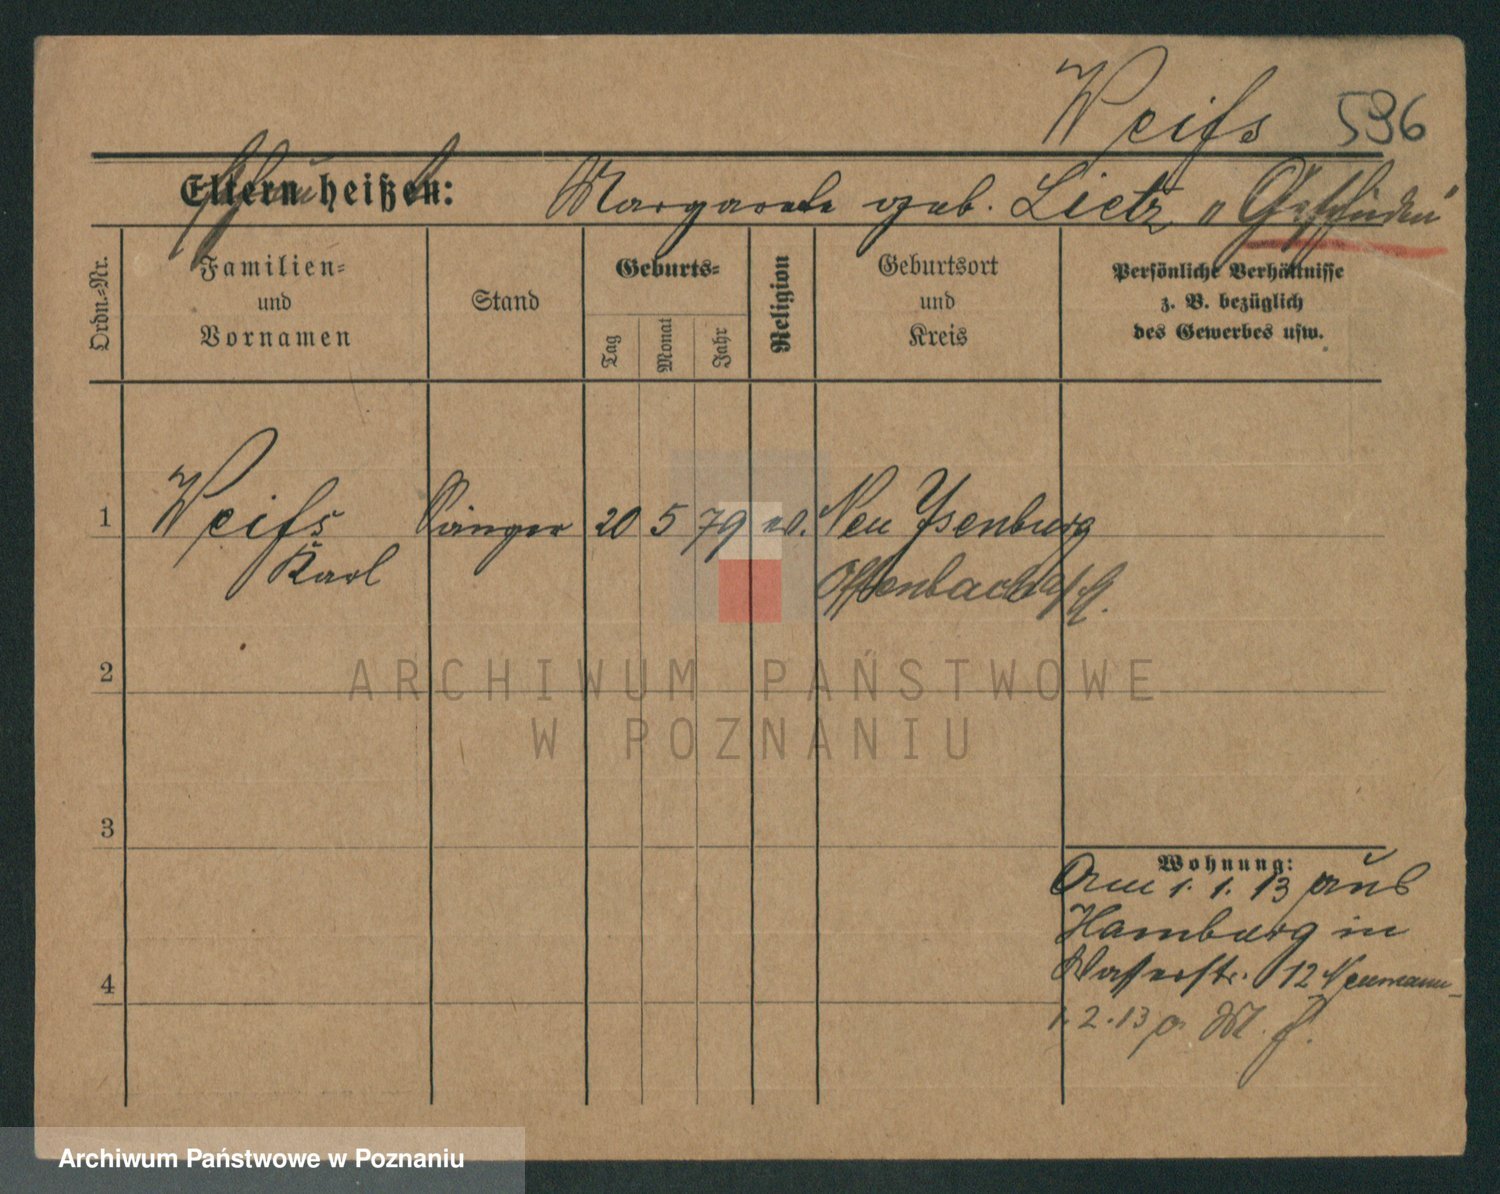 Weiſs 596
Eltern heißen: Margarete geb. Lietz „Geschieden“
Ordn.-Nr.
Familien- und Vornamen
Stand
Geburts-
Tag
Monat
Jahr
Religion
Geburtsort und Kreis
Persönliche Verhältnisse
z. B. bezüglich
des Gewerbes usw.
1 Weiſs Sänger 20 5 79 ev. Neu Ysenburg
Karl Offenbach a/M.
2
3
4
Wohnung:
Am 1. 1. 13 aus
Hamburg in
Wasserstr. 12 Neumann
1. 2. 13
ARCHIWUM PAŃSTWOWE
W POZNANIU
Archiwum Państwowe w Poznaniu